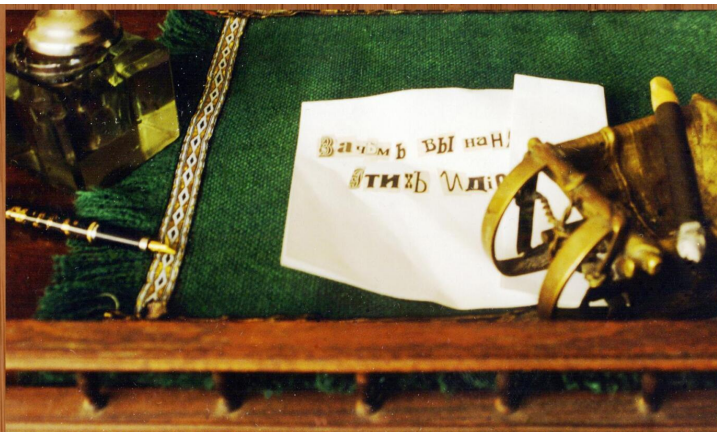 Зачѣмъ вы нан
этихъ идіо